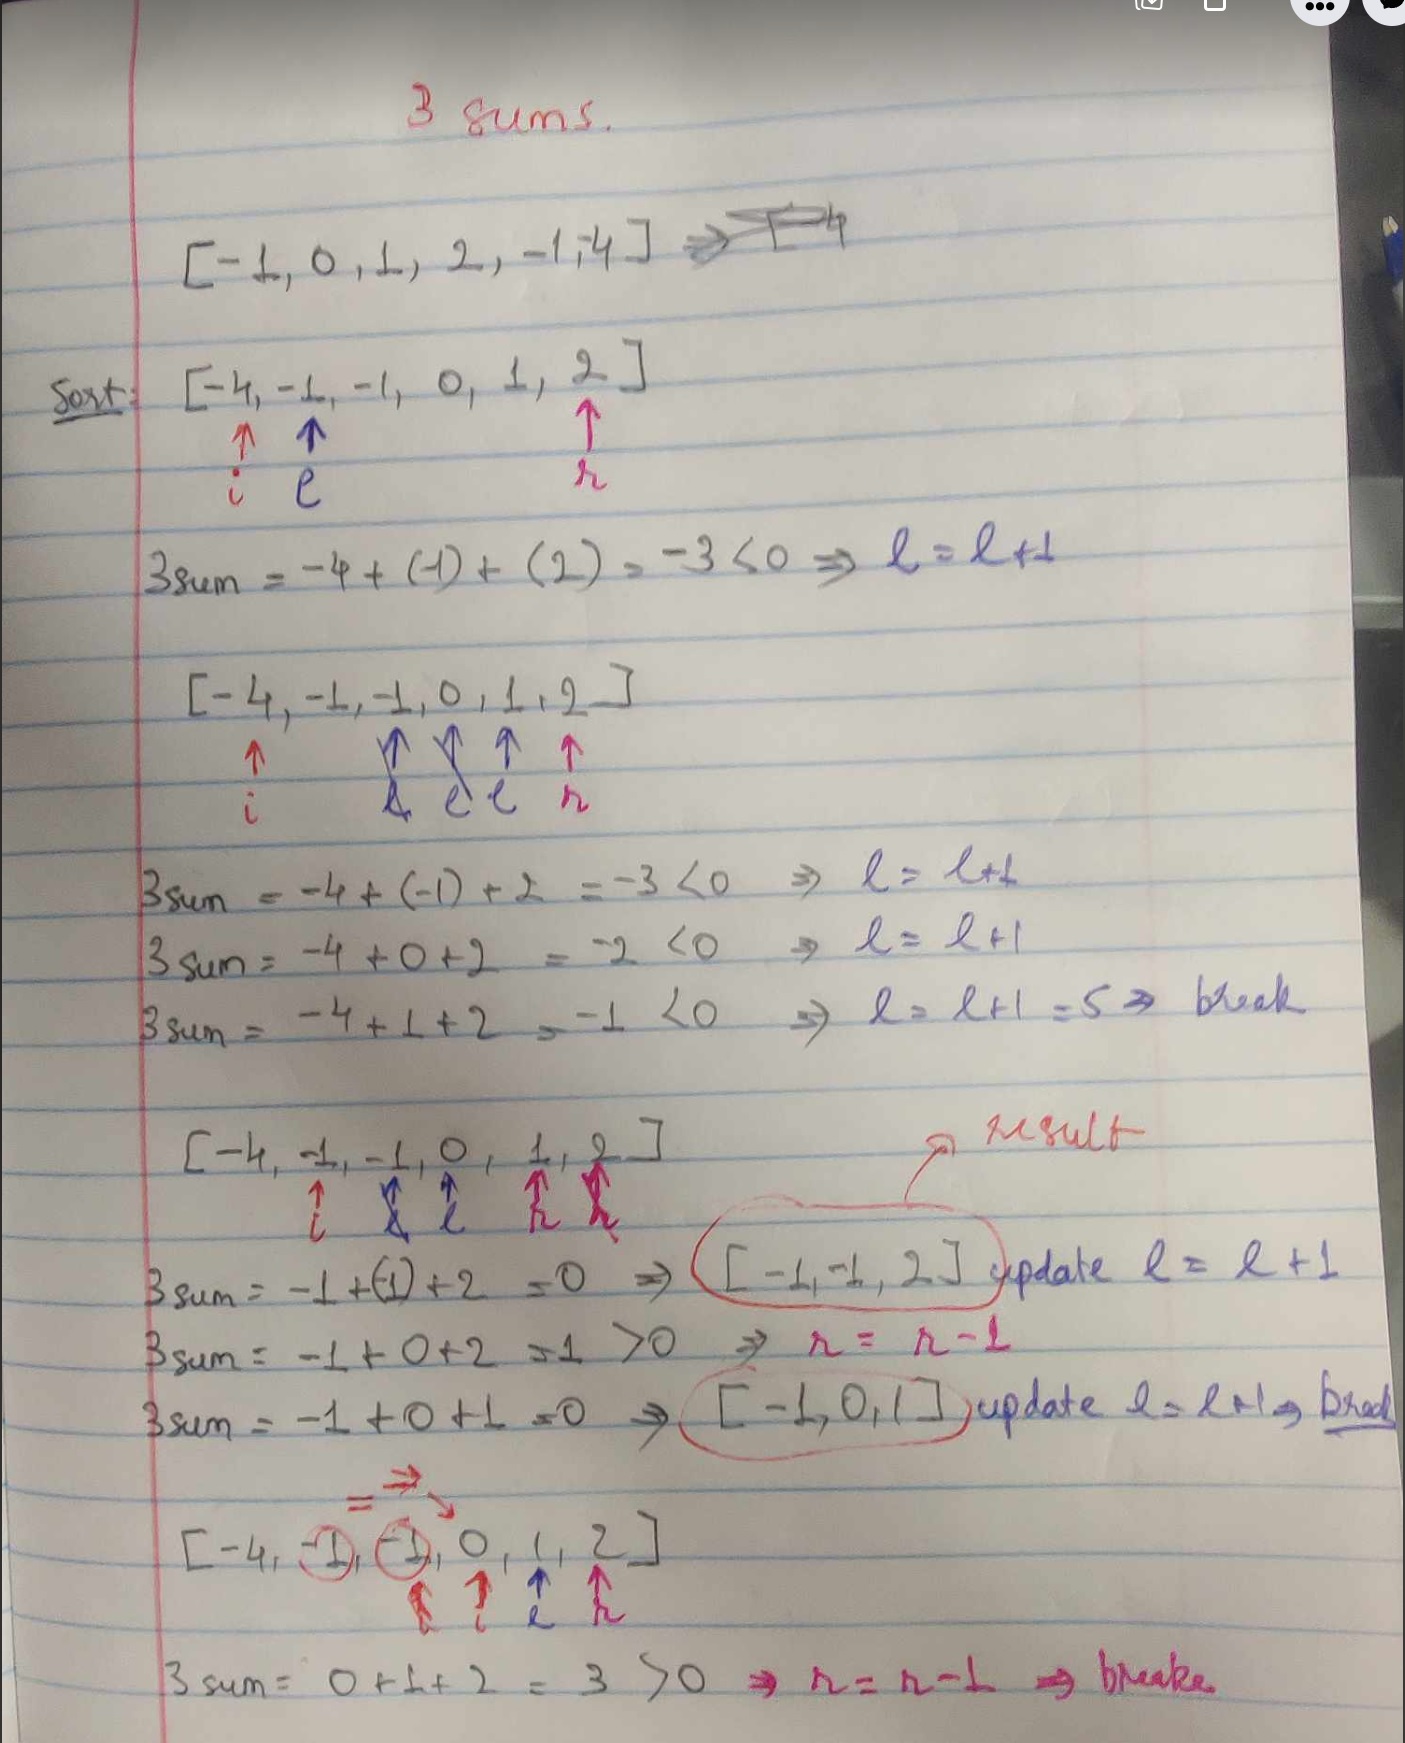 3 sums.
[-1, 0, 1, 2, -1, -4] ⇒ [-4
Sort: [-4, -1, -1, 0, 1, 2]
↑ ↑ ↑
i l r
3sum = -4 + (-1) + (2) = -3 < 0 ⇒ l = l+1
[-4, -1, -1, 0, 1, 2]
↑ ↑ ↑ ↑ ↑
i l l l r
3sum = -4 + (-1) + 2 = -3 < 0 ⇒ l = l+1
3sum = -4 + 0 + 2 = -2 < 0 ⇒ l = l+1
3sum = -4 + 1 + 2 = -1 < 0 ⇒ l = l+1 = 5 ⇒ break
result
[-4, -1, -1, 0, 1, 2]
↑ ↑ ↑ ↑ ↑
i l l r r
3sum = -1 + (-1) + 2 = 0 ⇒ [-1, -1, 2] update l = l + 1
3sum = -1 + 0 + 2 = 1 > 0 ⇒ r = r - 1
3sum = -1 + 0 + 1 = 0 ⇒ [-1, 0, 1] update l = l+1 ⇒ break
= ⇒ ↘
[-4, -1, -1, 0, 1, 2]
↑ ↑ ↑ ↑
i i l r
3sum = 0 + 1 + 2 = 3 > 0 ⇒ r = r - 1 ⇒ breake